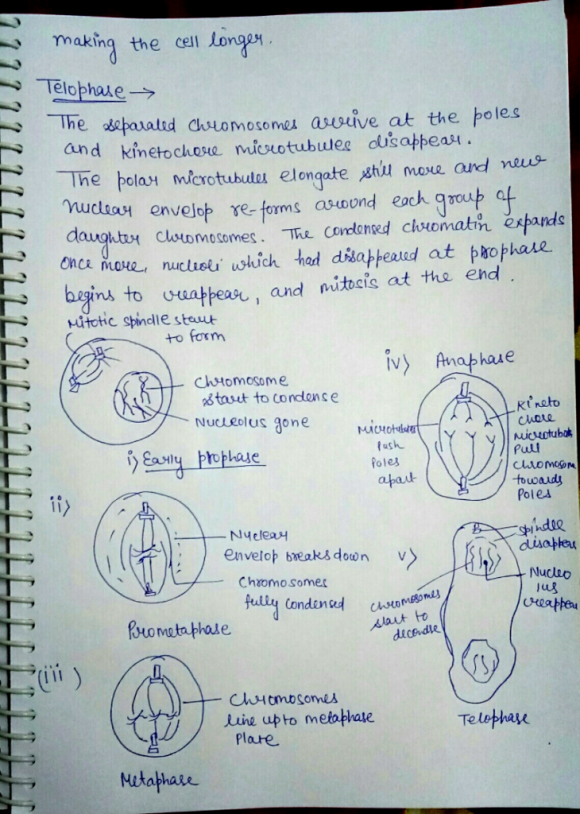 making the cell longer.
Telophase →
The separated chromosomes arrive at the poles
and kinetochore microtubules disappear.
The polar microtubules elongate still more and new
nuclear envelop re-forms around each group of
daughter chromosomes. The condensed chromatin expands
once more, nucleoli which had disappeared at prophase
begins to reappear, and mitosis at the end.
Mitotic spindle start
to form
Chromosome
start to condense
Nucleolus gone
i) Early prophase
ii)
Nuclear
envelop breaks down
Chromosomes
fully condensed
Prometaphase
(iii)
Chromosomes
line upto metaphase
Plate
Metaphase
iv) Anaphase
Microtubules
Push
Poles
apart
Kineto
chore
Microtubules
Pull
Chromosome
towards
Poles
v)
spindle
disappears
Nucleo
lus
reappear
Chromosomes
start to
Telophase